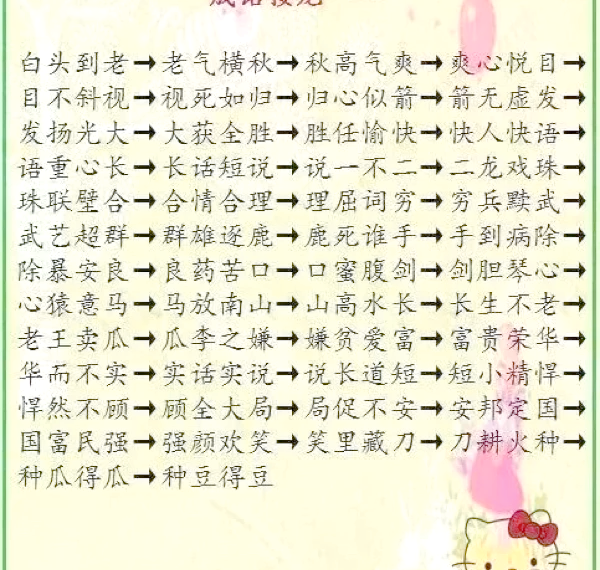 成语接龙
白头到老→老气横秋→秋高气爽→爽心悦目→
目不斜视→视死如归→归心似箭→箭无虚发→
发扬光大→大获全胜→胜任愉快→快人快语→
语重心长→长话短说→说一不二→二龙戏珠→
珠联璧合→合情合理→理屈词穷→穷兵黩武→
武艺超群→群雄逐鹿→鹿死谁手→手到病除→
除暴安良→良药苦口→口蜜腹剑→剑胆琴心→
心猿意马→马放南山→山高水长→长生不老→
老王卖瓜→瓜李之嫌→嫌贫爱富→富贵荣华→
华而不实→实话实说→说长道短→短小精悍→
悍然不顾→顾全大局→局促不安→安邦定国→
国富民强→强颜欢笑→笑里藏刀→刀耕火种→
种瓜得瓜→种豆得豆